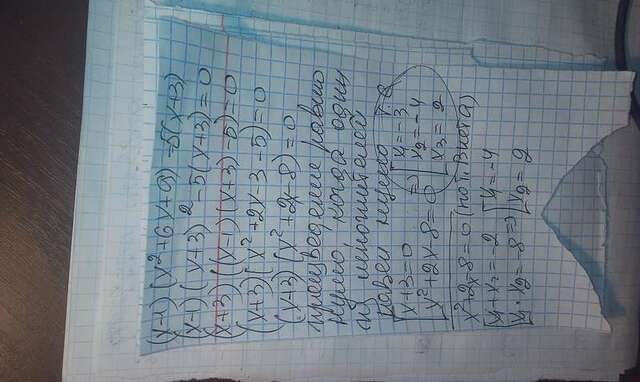 (x-1)(x²+6x+9) -5(x+3)
(x-1)(x+3)² -5(x+3)=0
(x+3)((x-1)(x+3)-5)=0
(x+3)(x²+2x-3-5)=0
(x+3)(x²+2x-8)=0
произведение равно
нулю когда один
из множителей
равен нулю
[x+3=0
[x²+2x-8=0 => [x₁=-3
[x₂=-4
[x₃=2
x²+2x-8=0 (по т. Виета)
[x₁+x₂=-2
[x₁·x₂=-8 => [x₁=-4
[x₂=2